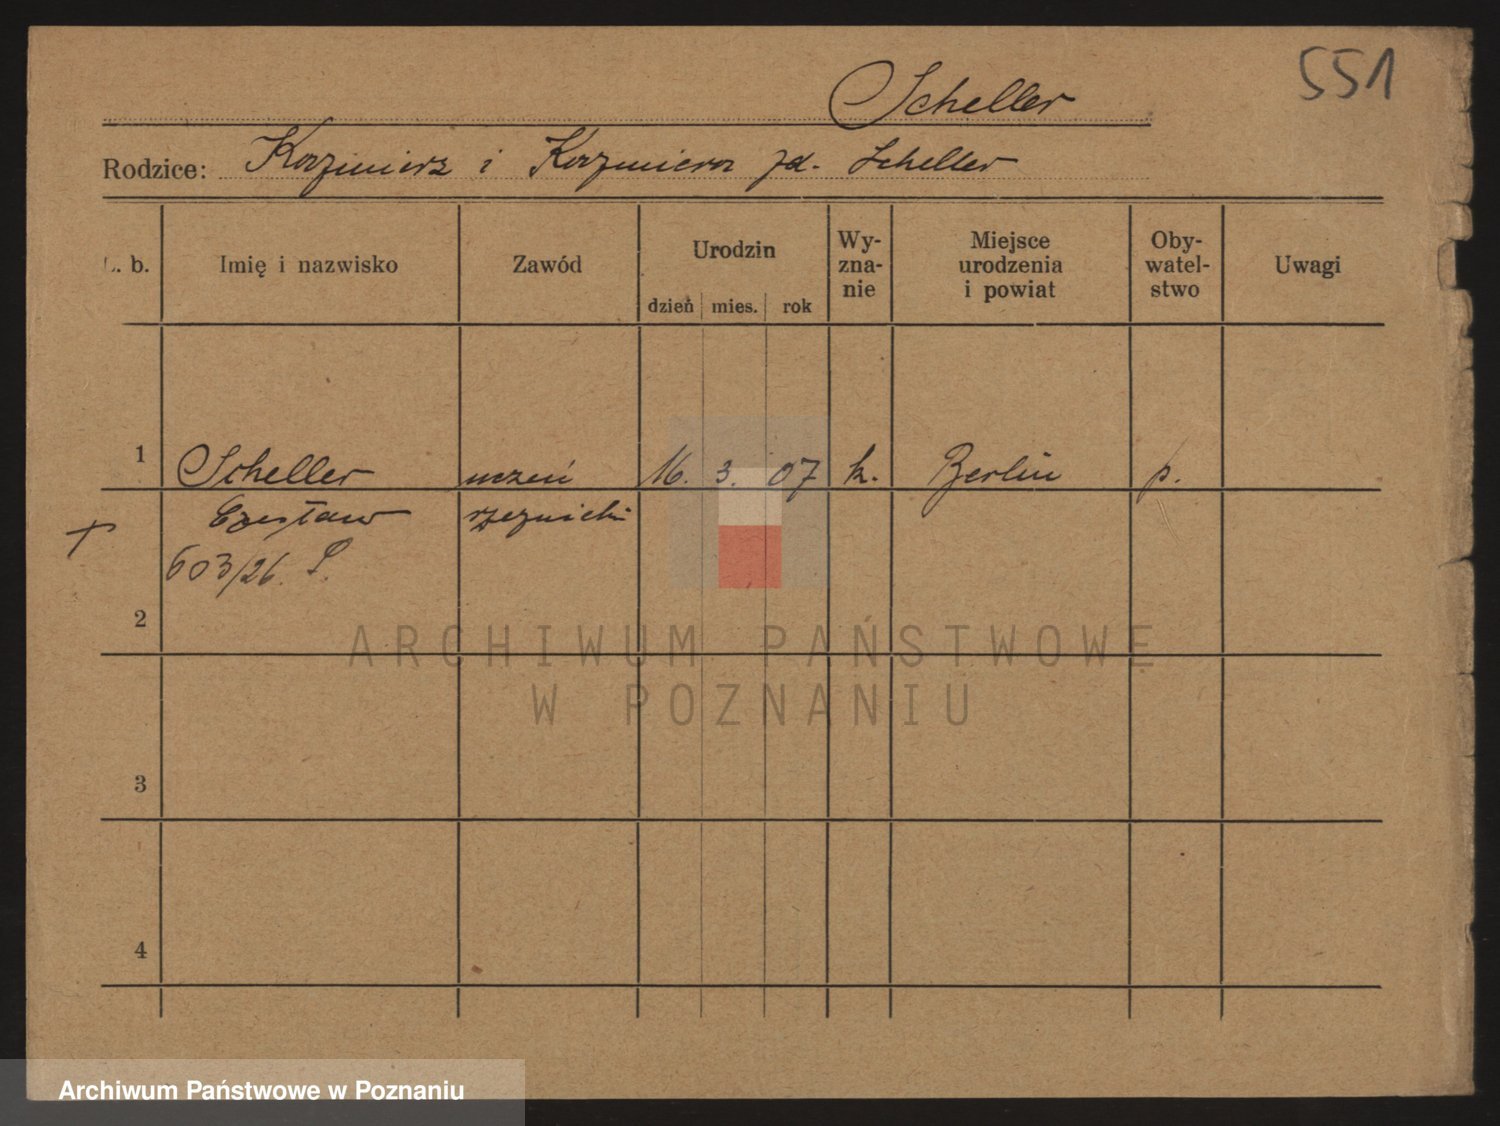 551
Scheller
Rodzice: Kazimierz i Kazimiera zd. Scheller
L. b. Imię i nazwisko Zawód Urodzin dzień mies. rok Wy-zna-nie Miejsce urodzenia i powiat Oby-watel-stwo Uwagi
1 Scheller uczeń 16. 3. 07 k. Berlin p.
Czesław rzeźnicki
603/26.
2
ARCHIWUM PAŃSTWOWE
W POZNANIU
3
4
Archiwum Państwowe w Poznaniu